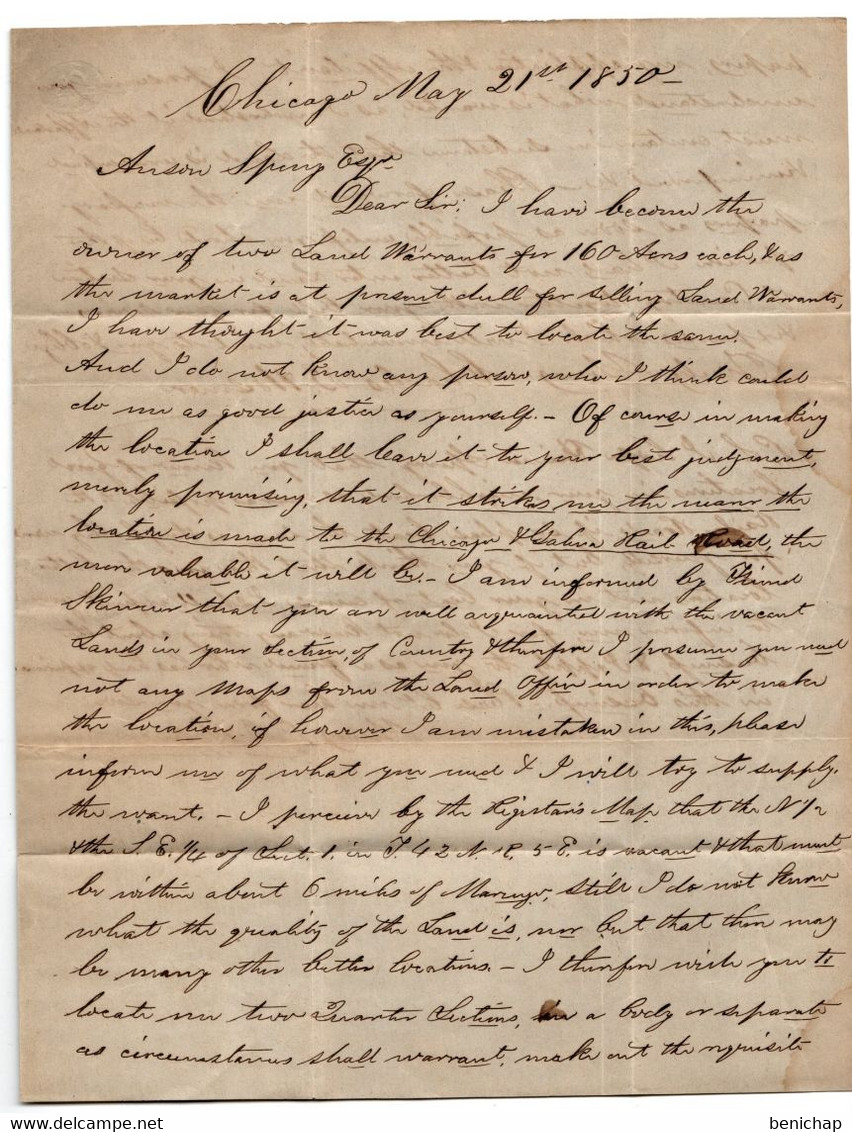 Chicago May 21st 1850
Anson Sperry Esqr
Dear Sir; I have become the
owner of two Land Warrants for 160 Acres each, & as
the market is at present dull for selling Land Warrants,
I have thought it was best to locate the same.
And I do not know any person, who I think could
do me as good justice as yourself. - Of course in making
the location I shall leave it to your best judgment,
merely premising, that it strikes me the nearer the
location is made to the Chicago & Galena Rail Road, the
more valuable it will be. - I am informed by Friend
Skinner that you are well acquainted with the vacant
Lands in your Section, of Country & therefore I presume you need
not any Maps from the Land Office in order to make
the location, if however I am mistaken in this, please
inform me of what you need & I will try to supply
the want. - I perceive by the Register's Map that the N 1/2
& the S. E. 1/4 of Sect. 1. in T. 42 N. R. 5 E. is vacant & that must
be within about 6 miles of Marengo, still I do not know
what the quality of the Land is, nor but that there may
be many other better locations. - I therefore wish you to
locate me two Quarter Sections, in a body or separate
as circumstances shall warrant, make out the requisite
benichap